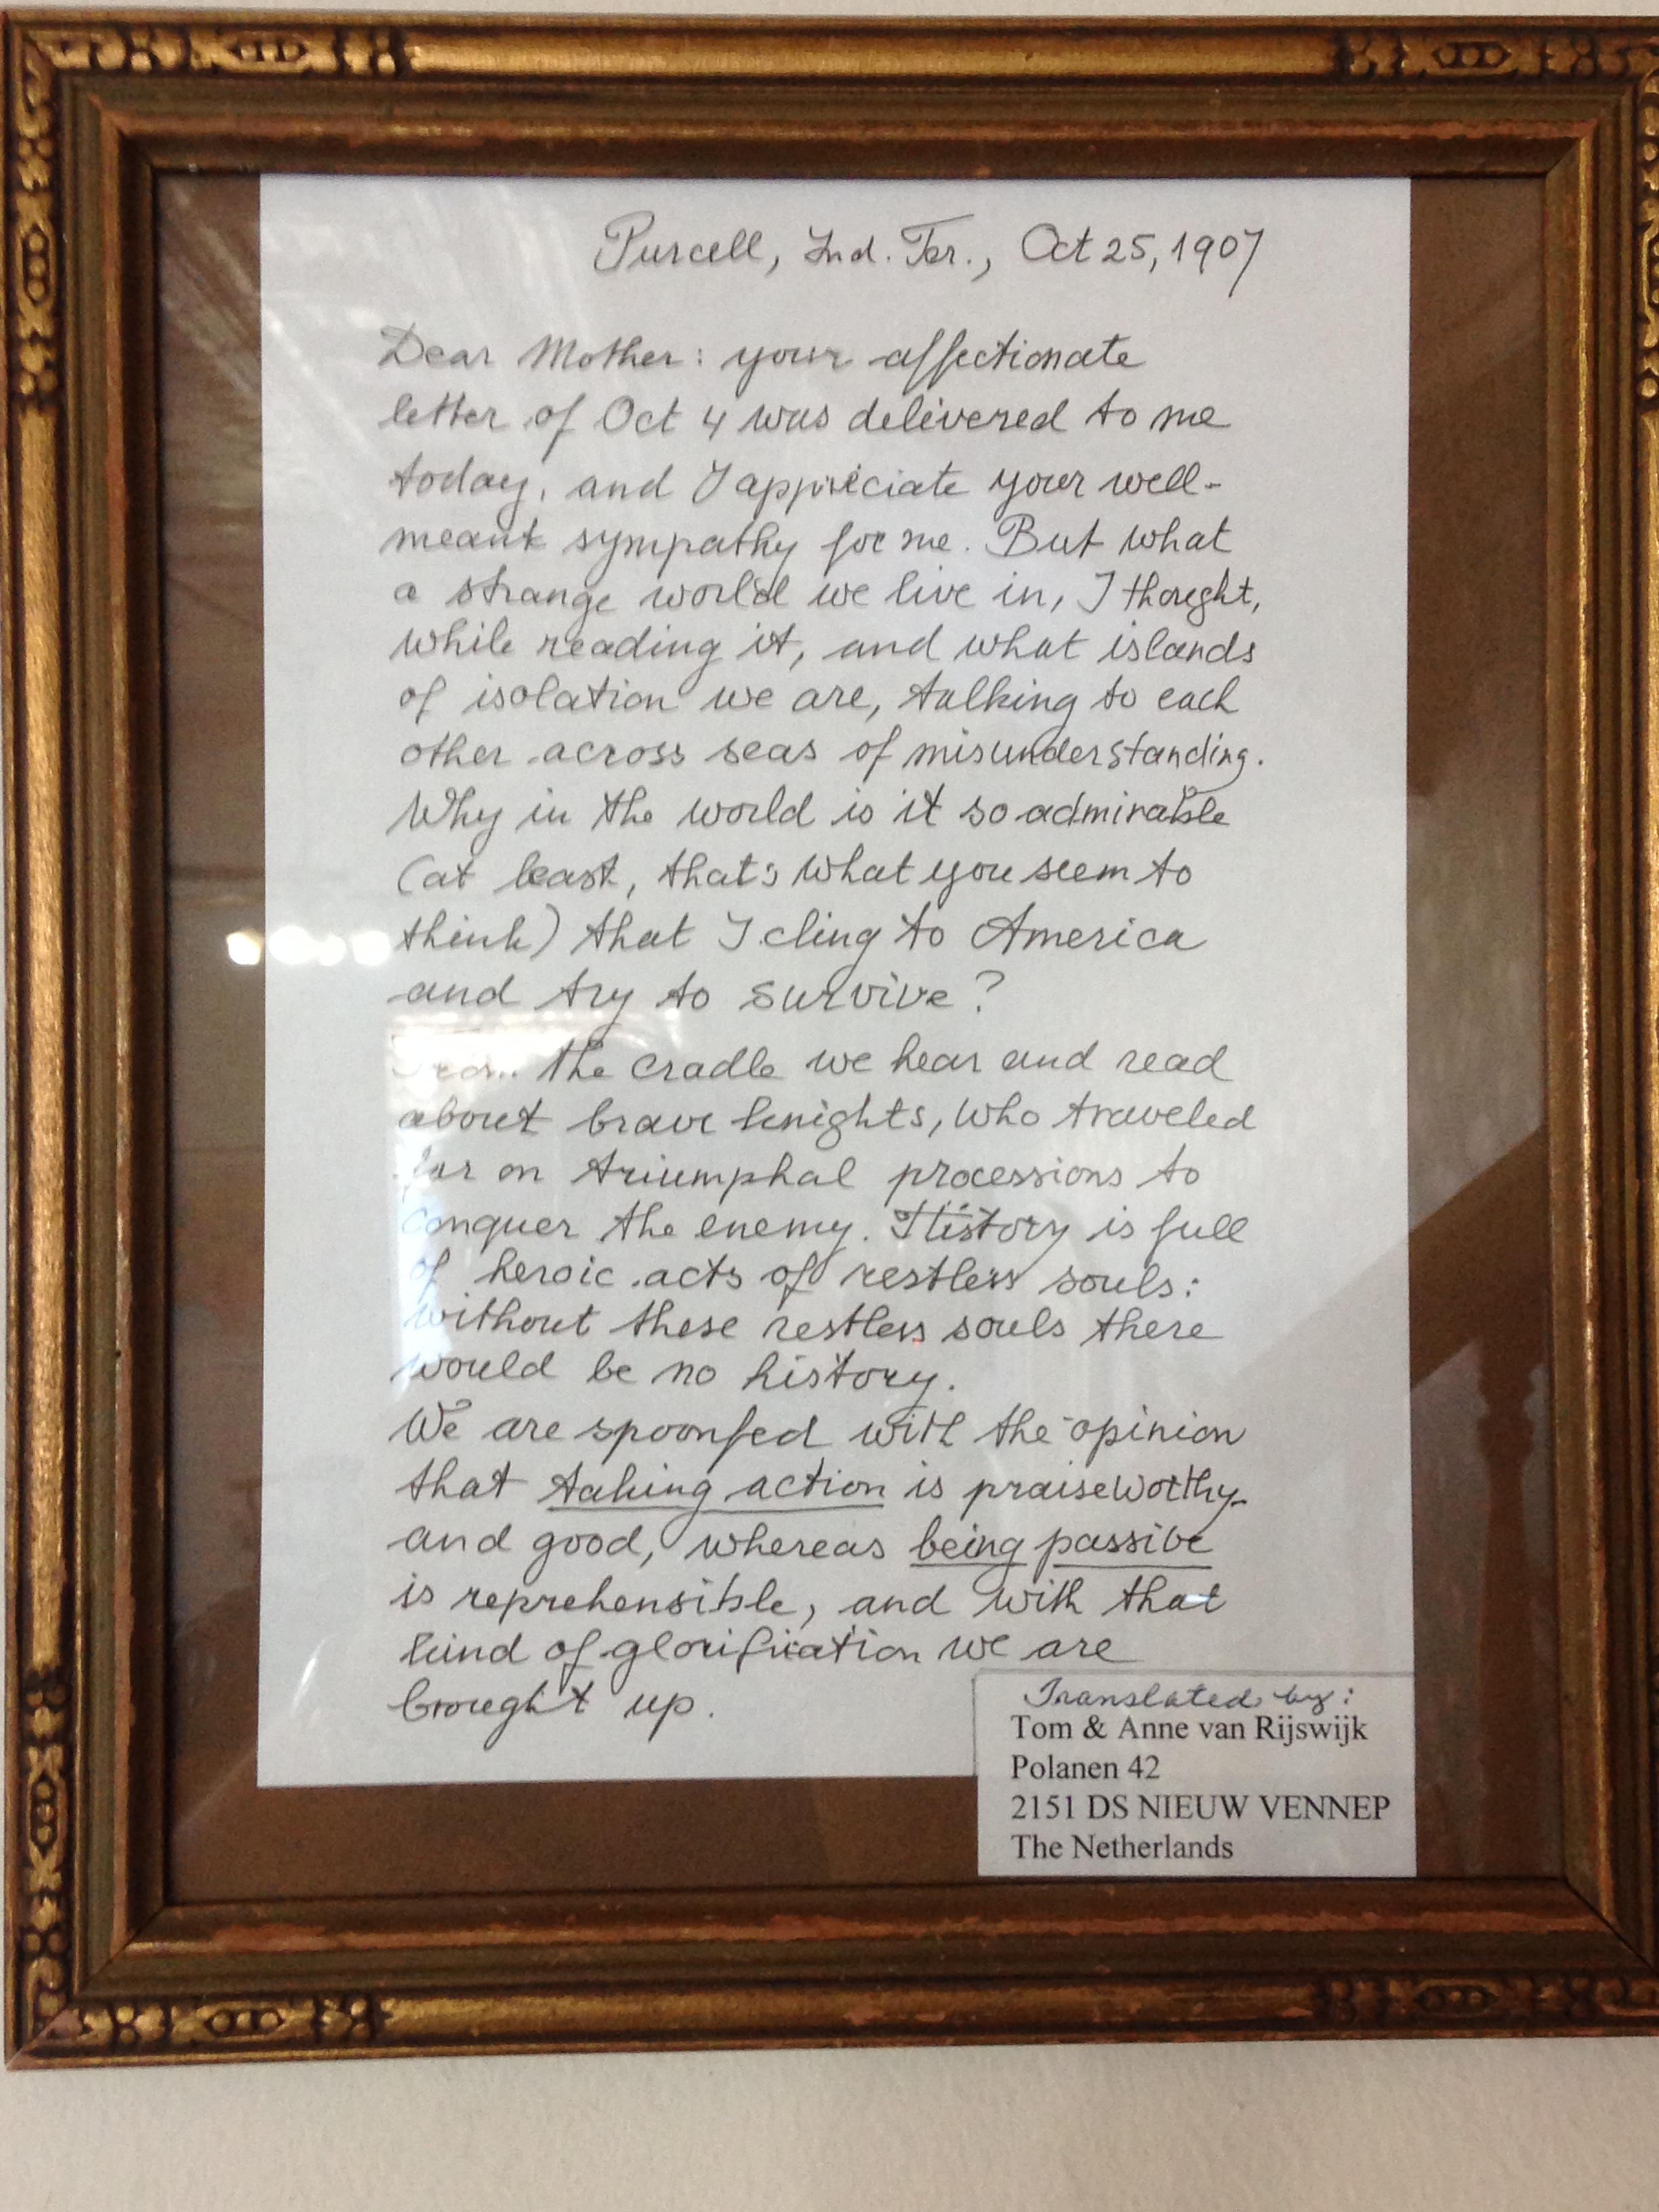 Purcell, Ind. Ter., Oct 25, 1907
Dear Mother: your affectionate
letter of Oct 4 was delivered to me
today, and I appreciate your well-
meant sympathy for me. But what
a strange world we live in, I thought,
while reading it, and what islands
of isolation we are, talking to each
other across seas of misunderstanding.
Why in the world is it so admirable
(at least, that's what you seem to
think) that I cling to America
and try to survive?
From the cradle we hear and read
about brave knights, who traveled
far on triumphal processions to
conquer the enemy. History is full
of heroic acts of restless souls:
without these restless souls there
would be no history.
We are spoonfed with the opinion
that taking action is praiseworthy
and good, whereas being passive
is reprehensible, and with that
kind of glorification we are
brought up.
Translated by:
Tom & Anne van Rijswijk
Polanen 42
2151 DS NIEUW VENNEP
The Netherlands